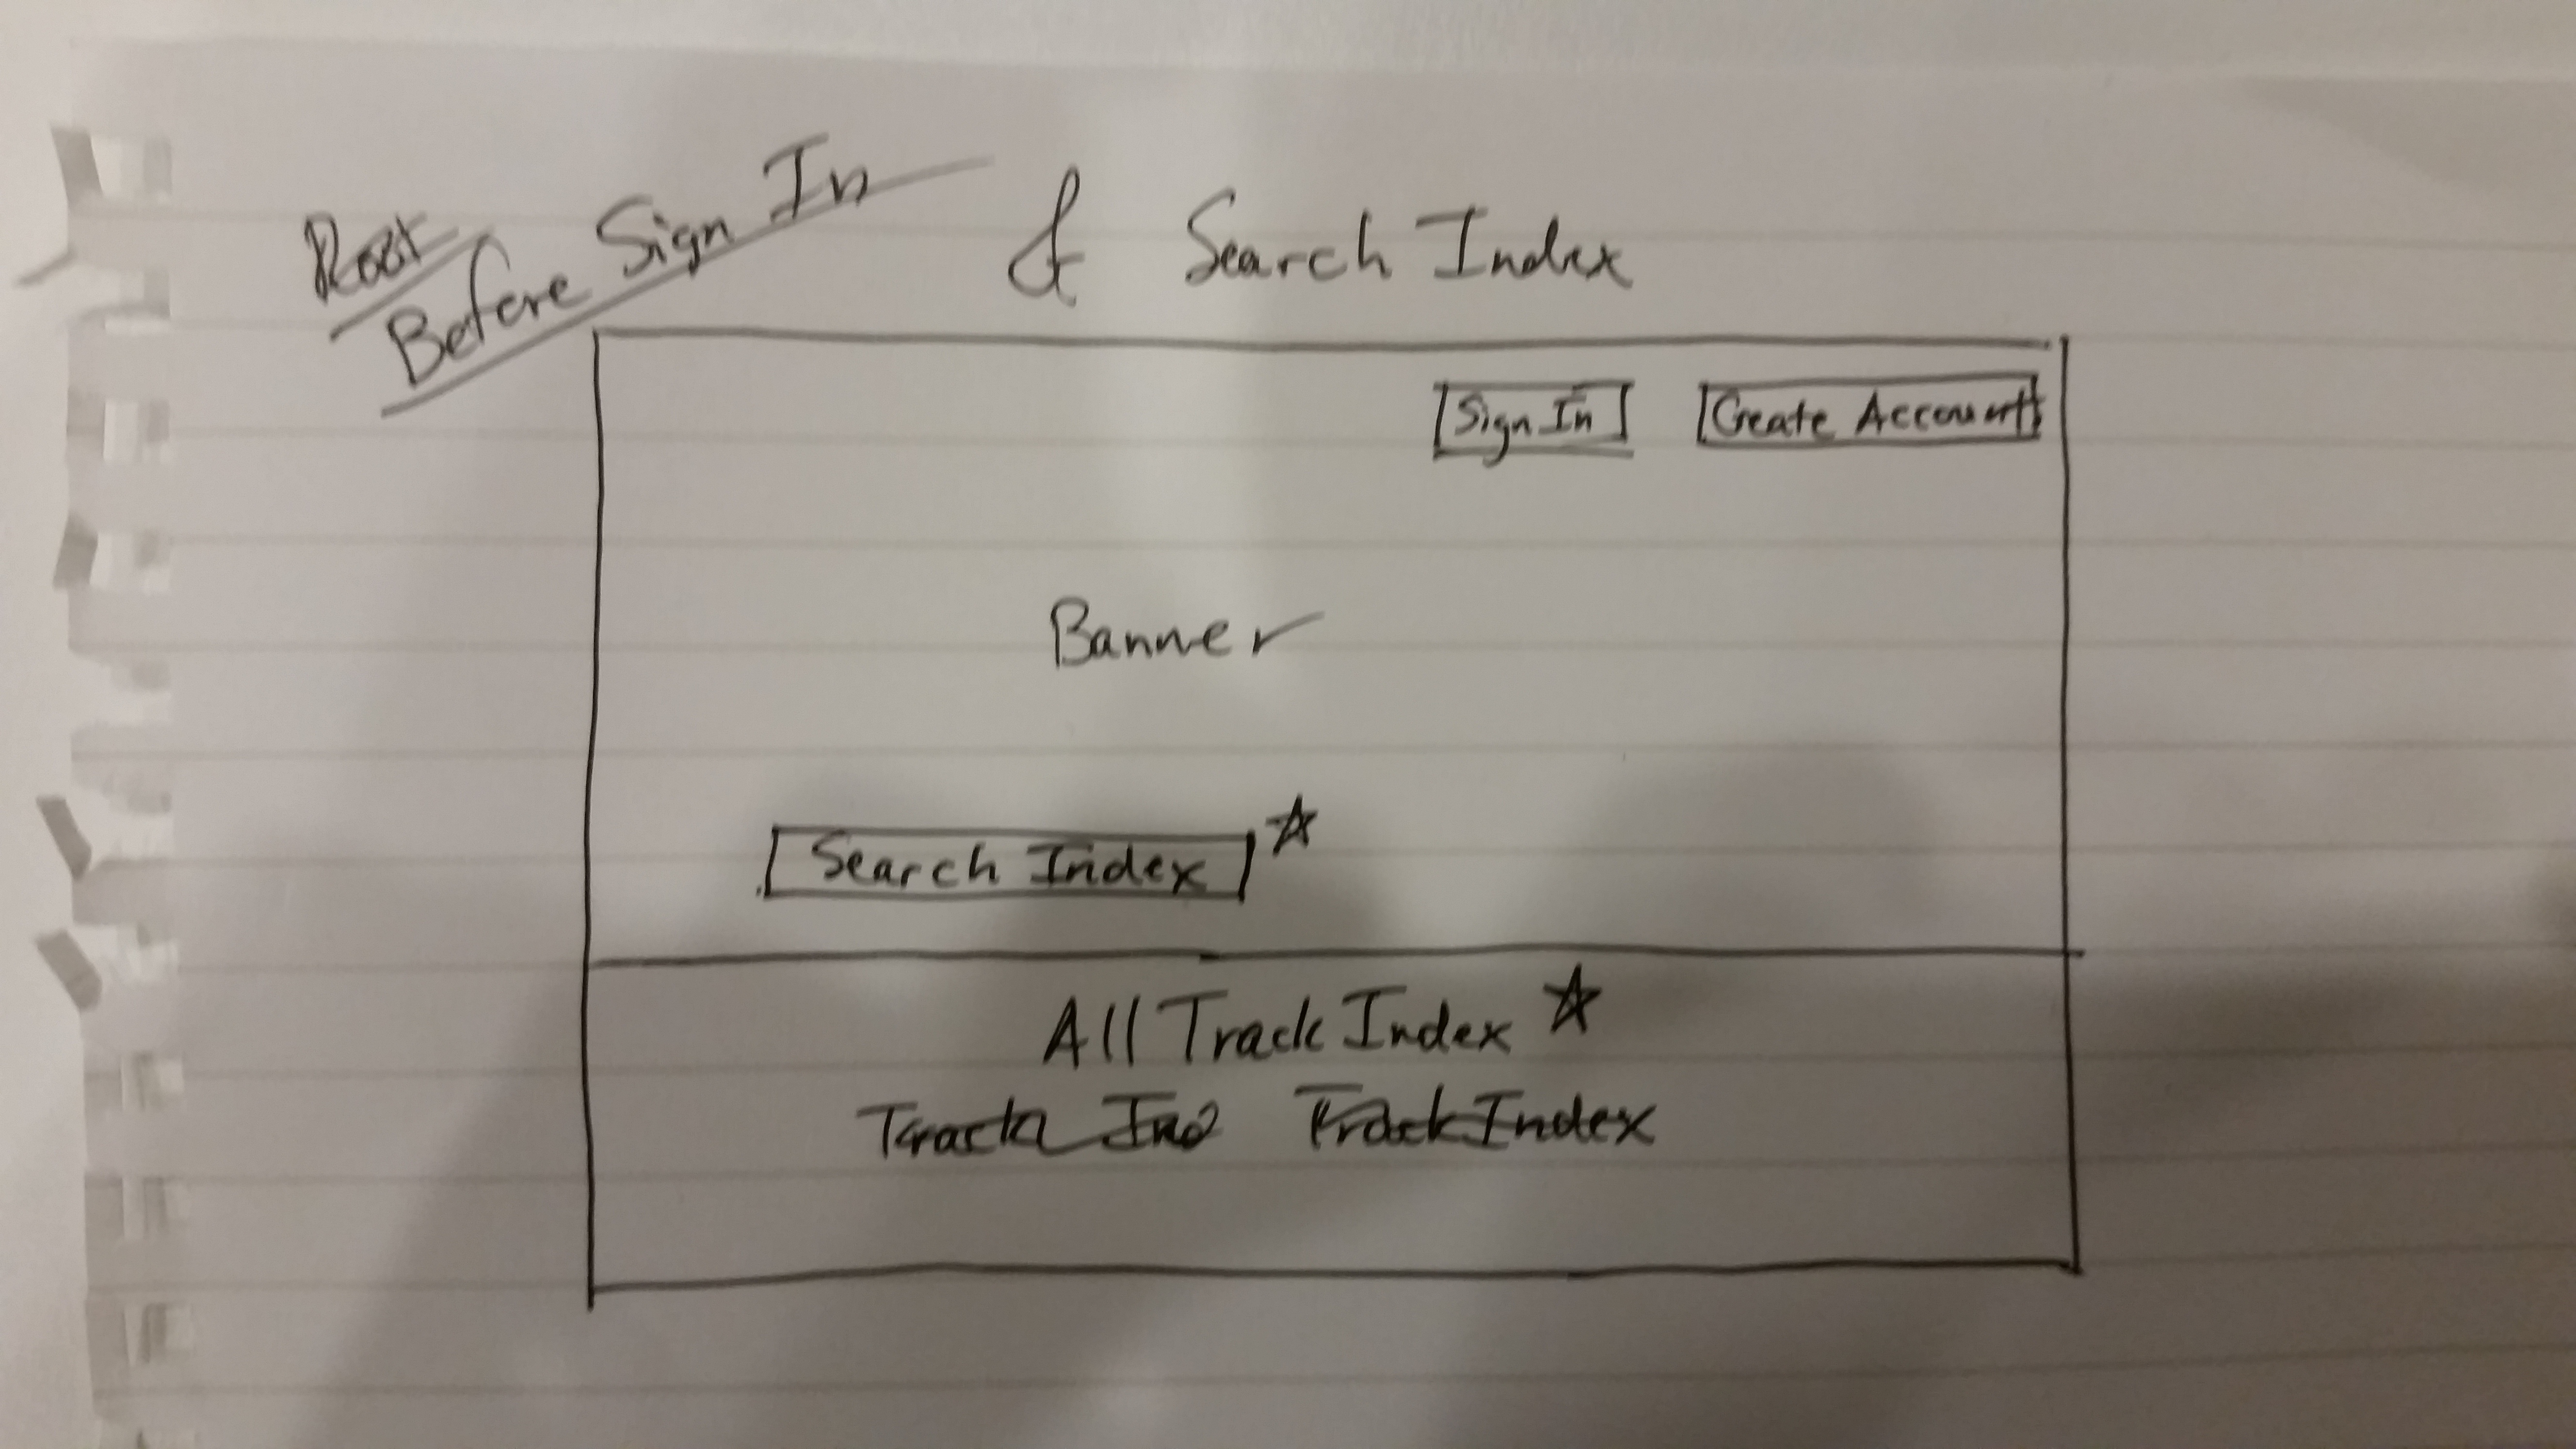 Root
Before Sign In & Search Index
Sign In Create Account
Banner
Search Index ☆
All Track Index ☆
Track Ind Track Index